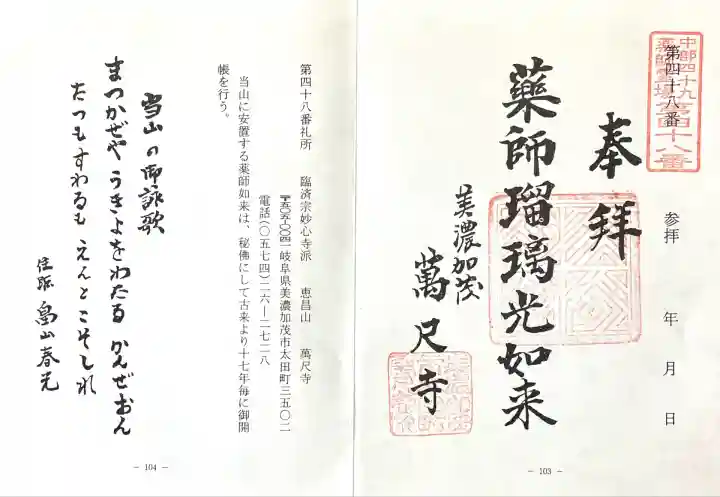 中部四十九
薬師霊場第四十八番
第四十八番
参拝　年　月　日
奉拝
藥師瑠璃光如来
美濃加茂
萬尺寺
－ 103 －
第四十八番礼所　臨済宗妙心寺派　恵昌山　萬尺寺
〒五〇五-〇〇四一岐阜県美濃加茂市太田町三五〇二
電話(〇五七四)二六ー二七二八
当山に安置する薬師如来は、秘佛にして古来より十七年毎に御開
帳を行う。
当山の御詠歌
まつかぜや うきよをわたる かんぜおん
たつもすわるも えんとこそしれ
住職 畠山春光
－ 104 －